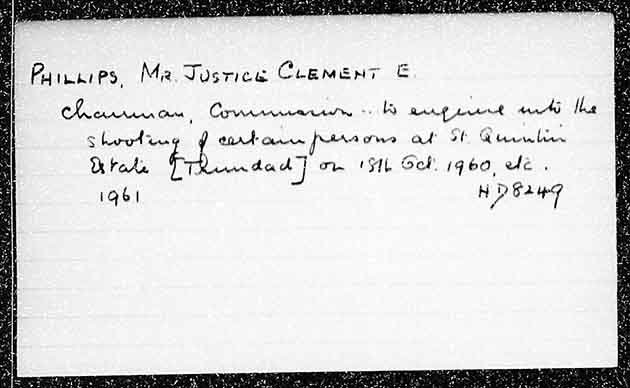 PHILLIPS, MR. JUSTICE CLEMENT E.
Chairman, Commission .. to enquire into the
shooting of certain persons at St. Quintin
Estate [Trinidad] on 15th Oct. 1960, etc.
1961 HD8249